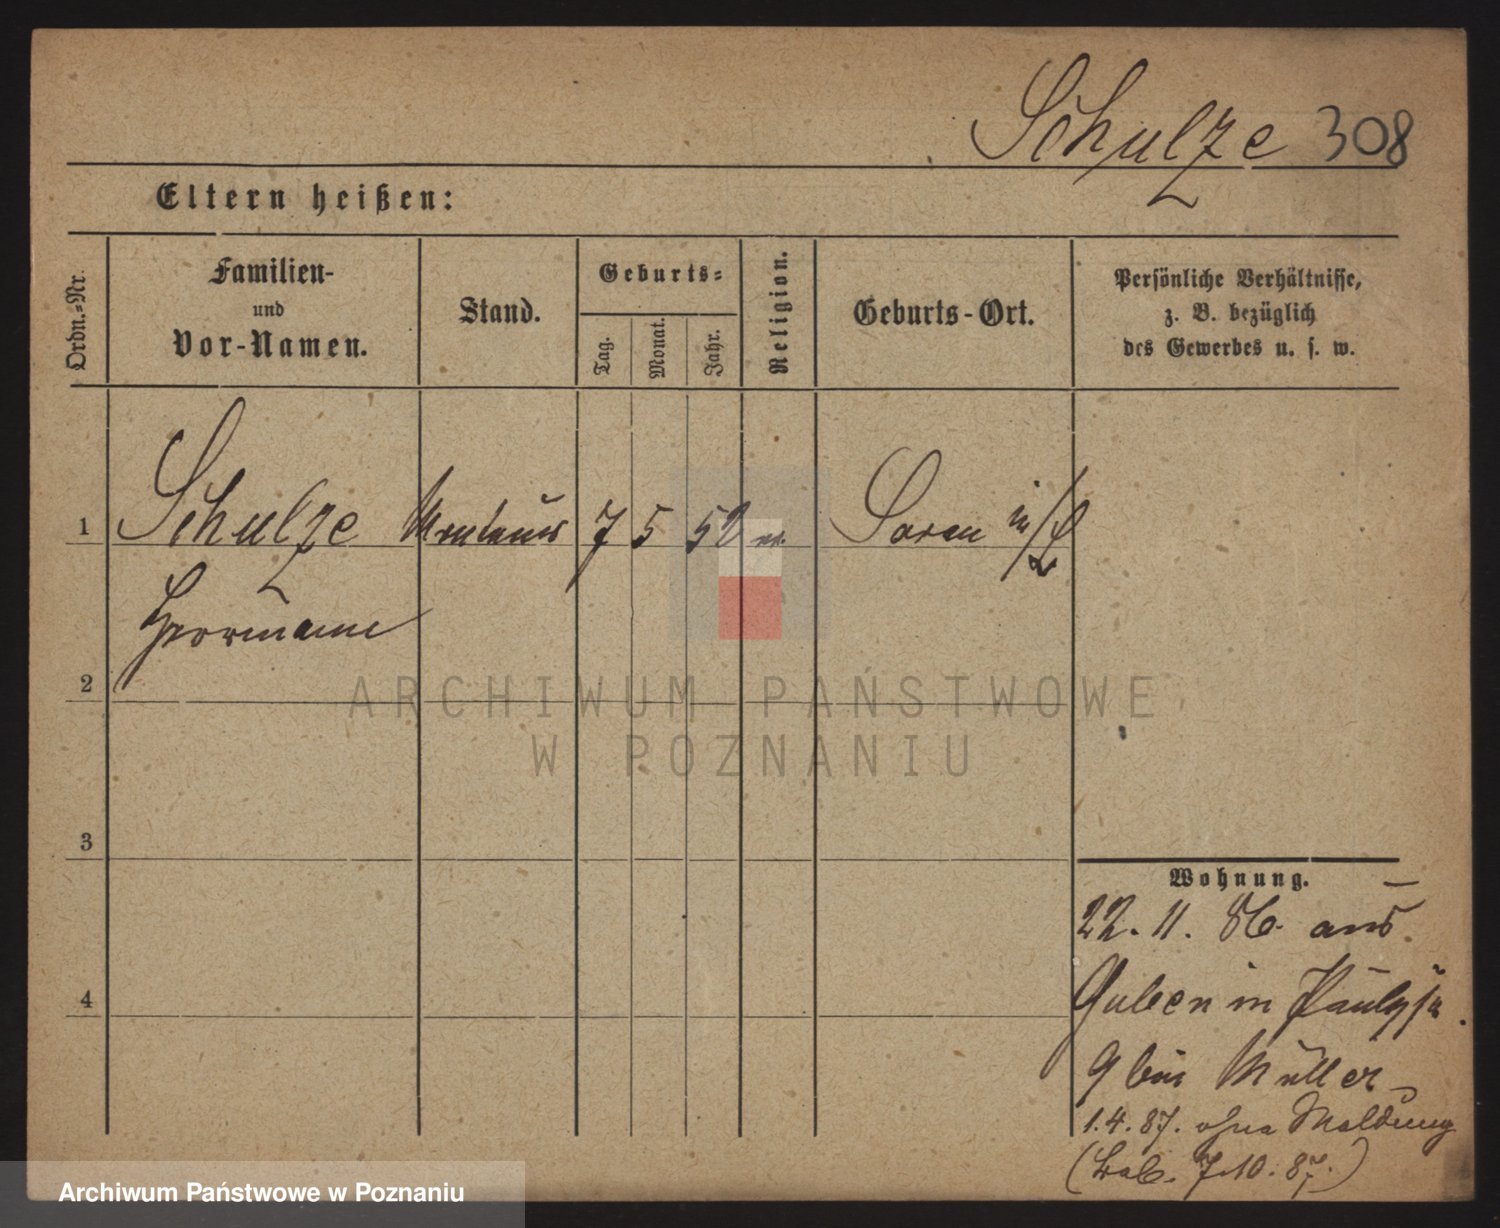 Schulze 308
Eltern heißen:
Ordn.-Nr.
Familien-
und
Vor-Namen.
Stand.
Geburts-
Tag.
Monat.
Jahr.
Religion.
Geburts-Ort.
Persönliche Verhältnisse,
z. B. bezüglich
des Gewerbes u. s. w.
1 Schulze Monteur 7 5 52 ev. Soran i/L
Herrmann
2
ARCHIWUM PAŃSTWOWE
W POZNANIU
3
Wohnung.
22. 11. 86. aus
4
Guben in
9 bei Müller
1. 4. 87. ohne Meldung
7.10.87.)
Archiwum Państwowe w Poznaniu